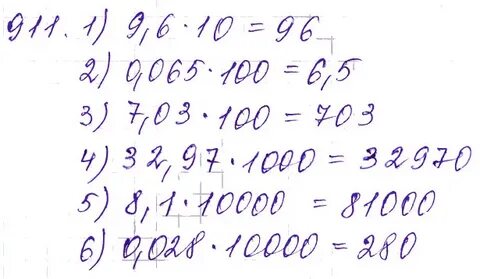 911. 1) 9,6 · 10 = 96
2) 0,065 · 100 = 6,5
3) 7,03 · 100 = 703
4) 32,97 · 1000 = 32970
5) 8,1 · 10000 = 81000
6) 0,028 · 10000 = 280